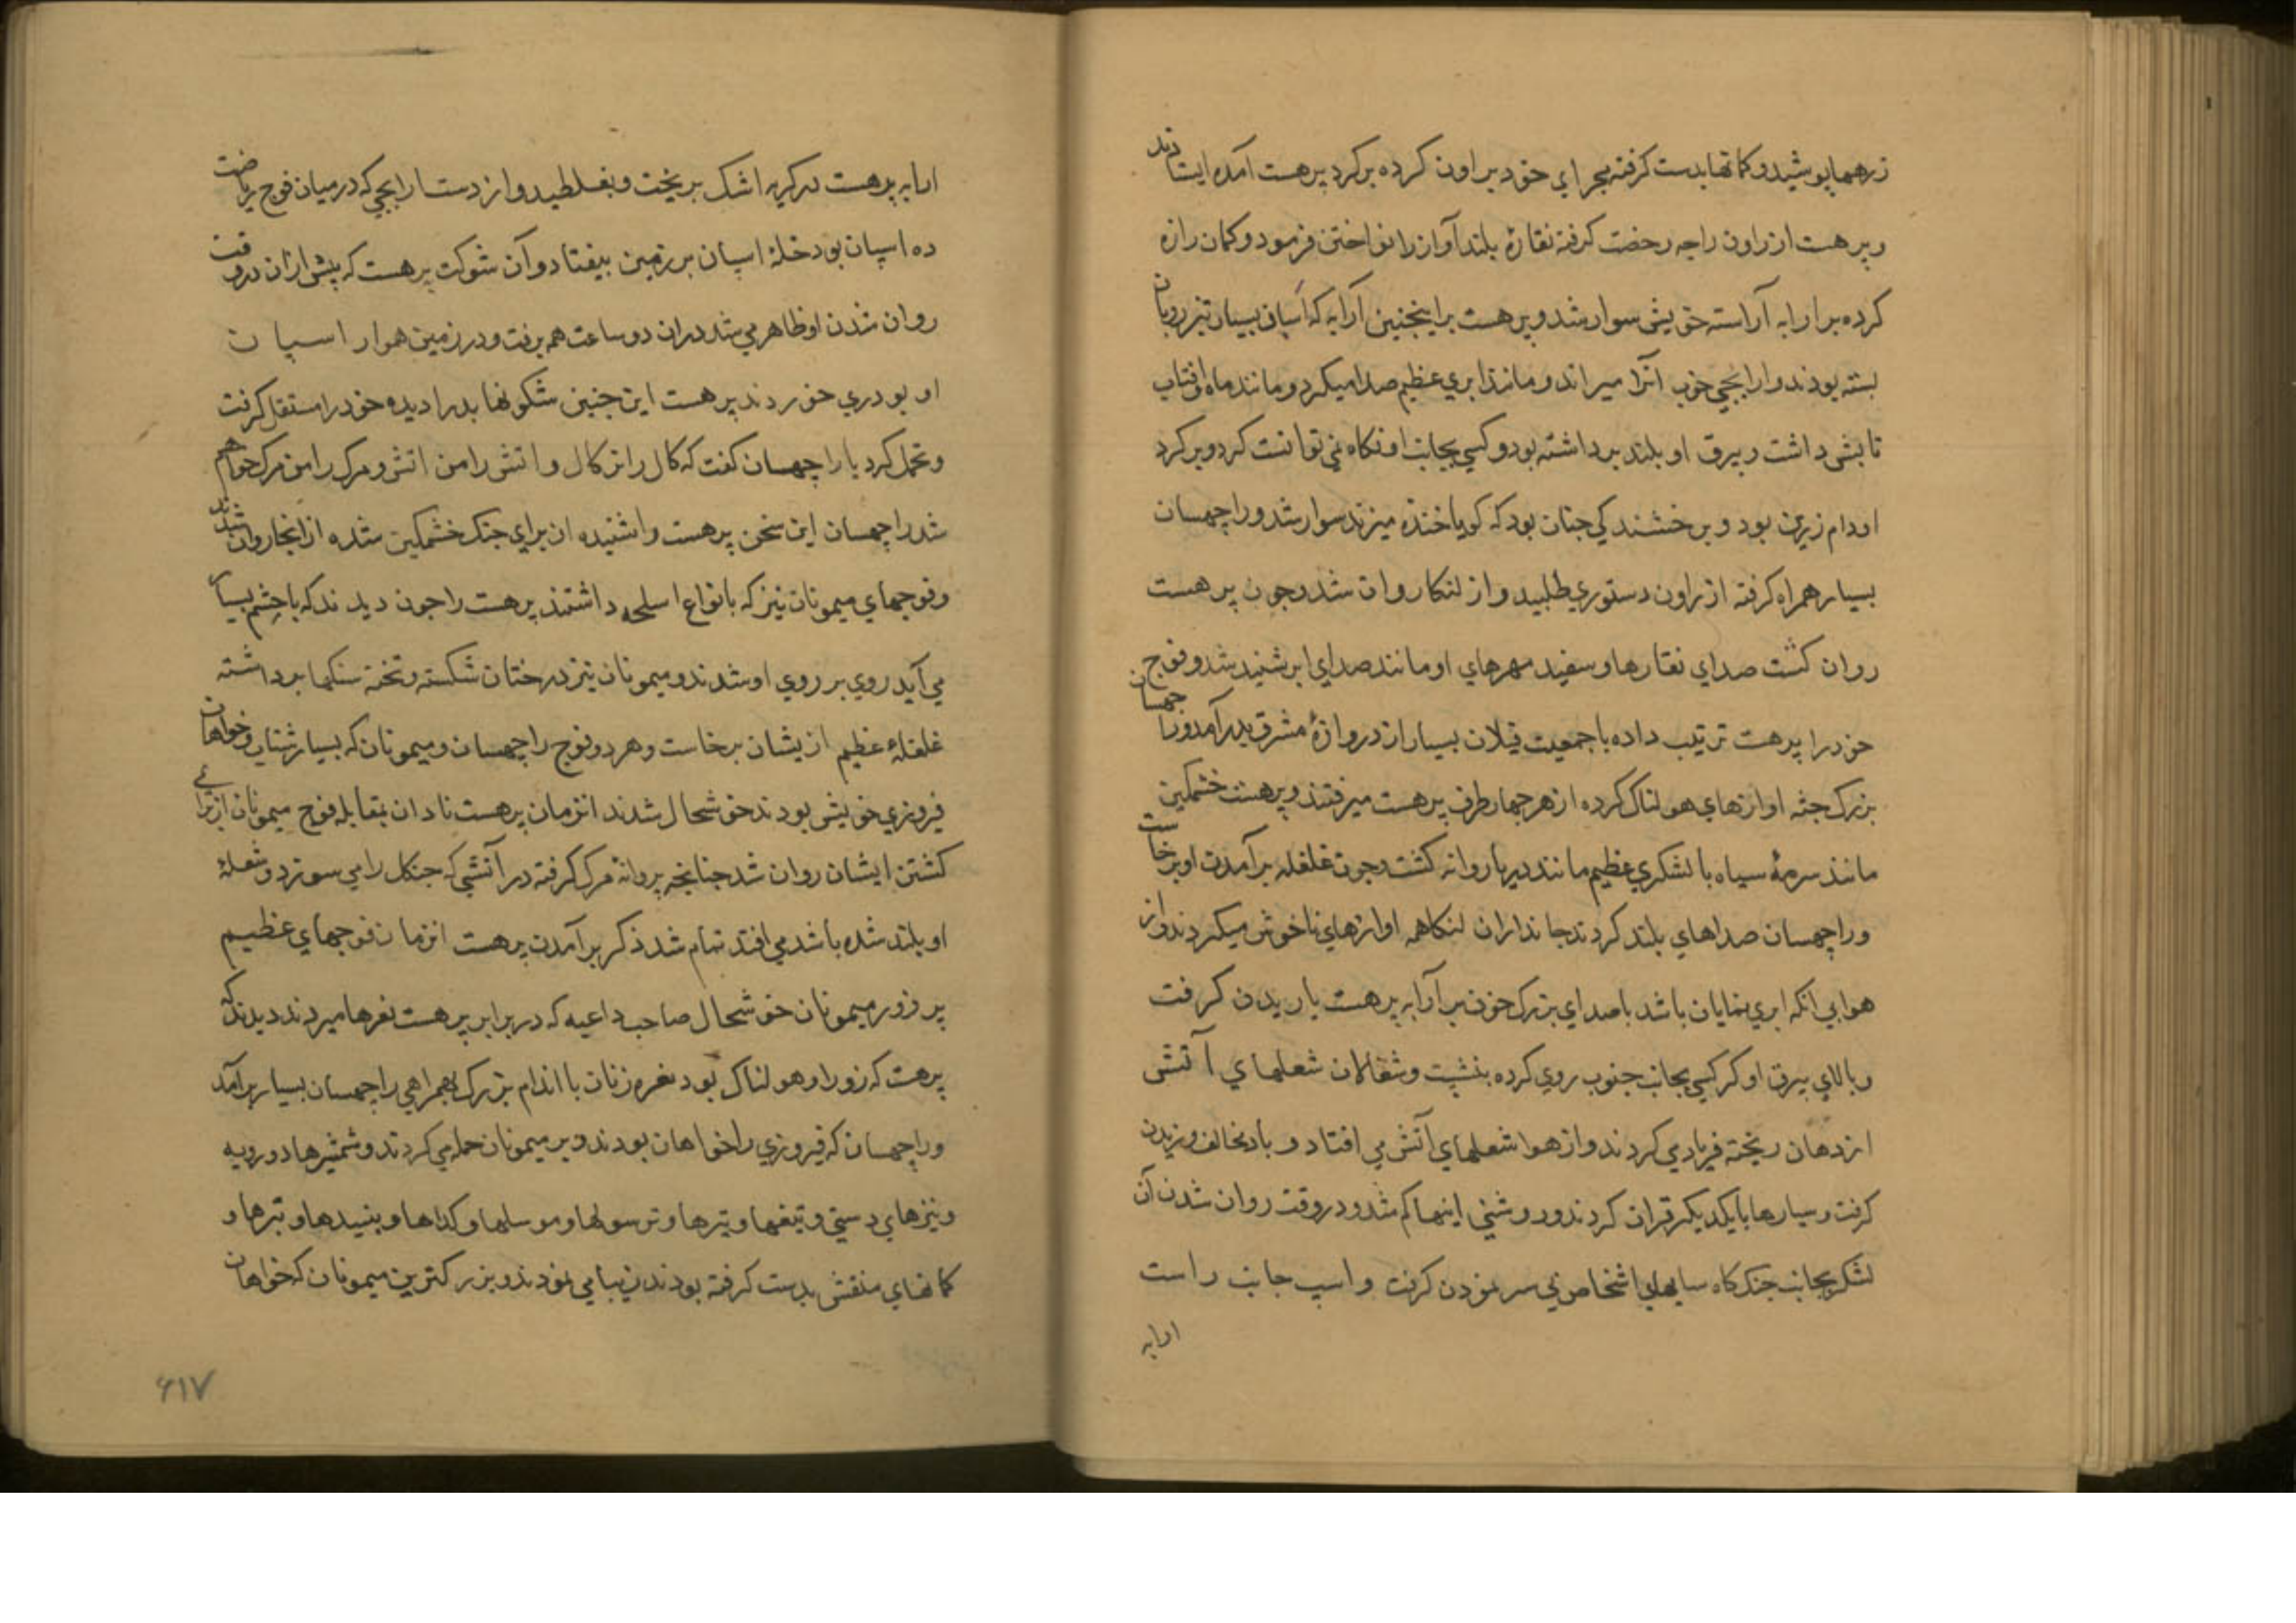 زرهها پوشیده و کمانها بدست کرفته مجرای خود براون کرده برکرد پرهست آمده ایستادند
و پرهست از راون راجه رخصت کرفته نقارهٔ بلند آواز را نواختن فرمود و کمان را زه
کرده بر ارابه آراسته خویش سوار شد و پرهست بر اینچنین آرابه که اسپان بسیار تیز رو بآن
بسته بودند و ارابچی خوب آنرا میراند و مانند ابری عظیم صدا میکرد و مانند ماه و افتاب
تابش داشت و بیرق او بلند برداشته بود و کسی بجانب او نکاه نمی توانست کرد و برکرد
او دام زرین بود و بر خشندکی چنان بود که کویا خنده میزند سوار شد و راچهسان
بسیار همراه کرفته از راون دستوری طلبید و از لنکا روان شد و چون پرهست
روان کشت صدای نقارها و سفید مهرهای او مانند صدای ابر شنید شد و فوج
خود را پرهست ترتیب داده با جمعیت فیلان بسیار از دروازهٔ مشرق بدر آمد و راچهسان
بزرک جثه اوازهای هولناک کرده از هر چهار طرف پرهست میرفتند و پرهست خشمکین
مانند سرمهٔ سیاه با لشکری عظیم مانند دریا روانه کشت و چون غلغله برآمدن او برخاست
و راچهسان صداهای بلند کردند جانداران لنکا همه اوازهای ناخوش میکردند و از
هوا بی انکه ابری نمایان باشد با صدای بزرک خون بر آرابه پرهست باریدن کرفت
و بالای بیرق او کرکسی بجانب جنوب روی کرده بنشست و شغالان شعلهای آتش
از دهان ریخته فریاد می کردند و از هوا شعلهای آتش می افتاد و باد مخالف وزیدن
کرفت و سیارها با یکدیکر قران کردند و روشنی اینها کم شد و در وقت روان شدن آن
لشکر بجانب جنک کاه سایهای اشخاص بی سر نمودن کرفت و اسپ جانب راست
ارابه
ارابه پرهست در کریه اشک بریخت و بغلطید و از دست ارابچی که در میان فوج ریاضت
ده اسپان بود خلهٔ اسپان بر زمین بیفتاد و آن شوکت پرهست که پیش ازان در وقت
روان شدن او ظاهر می شد دران دو ساعت هم برفت و در زمین هموار اسپان
او بو دری خوردند پرهست این چنین شکونها بد را دیده خود را مستقل کرفت
و تحمل کرد با راچهسان کفت که کال را من کال و اتش را من اتش و مرک را من مرک خواهم
شد راچهسان این سخن پرهست را شنیده از برای جنک خشمکین شده از انجا روان شدند
و فوجهای میمونان نیز که بانواع اسلحه داشتند پرهست را چون دیدند که با چشم بسیار
می آید روی بر روی او شدند و میمونان نیز درختان شکسته و تخته سنکها برداشته
غلغلهٔ عظیم از یشان برخاست و هر دو فوج راچهسان و میمونان که بسیار شتاب و خواهان
فیروزی خویش بودند خوشحال شدند انزمان پرهست نادان بمقابله فوج میمونان از برای
کشتن ایشان روان شد چنانچه پروانه مرک کرفته در آتشی که جنکل را می سوزد و شعلهٔ
او بلند شده باشد می افتد تمام شد ذکر برآمدن پرهست انزمان فوجهای عظیم
پر زور میمونان خوشحال صاحب داعیه که در برابر پرهست نعرها میزدند دیدند که
پرهست که زور او هولناک بود نعره زنان با اندام بزرک بهمراهی راچهسان بسیار برآمد
و راچهسان که فیروزی را خواهان بودند و بر میمونان حمله می کردند و شمشیرها دو رویه
و نیزهای دستی و تیغها و تیرها و ترسولها و موسلها و کداها و بنسیدها و تبرها و
کمانهای منقش بدست کرفته بودند زیبا می نمودند و بزرکترین میمونان که خواهان
۶۱۷